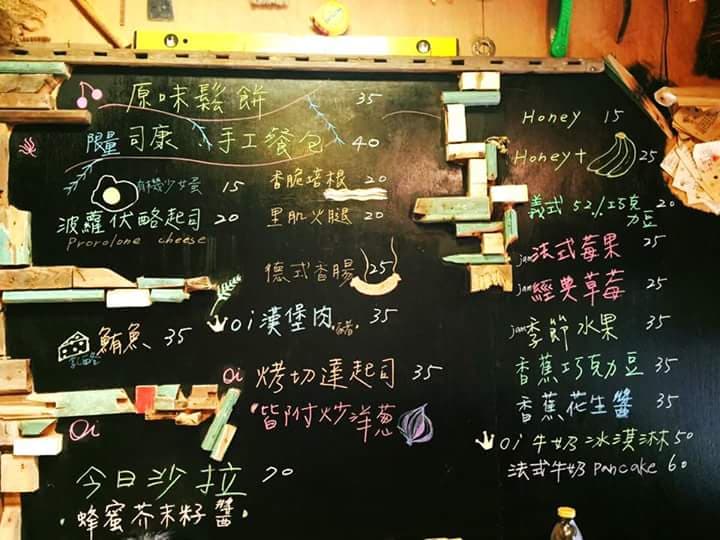 原味鬆餅 35
限量司康 手工餐包 40
有機少女蛋 15
波蘿伏酪起司 20
Prorolone cheese
香脆培根 20
里肌火腿 20
德式香腸 25
乳酪 鮪魚 35
oi 漢堡肉 豬 35
oi 烤切達起司 35
皆附炒洋蔥
oi
今日沙拉 70
蜂蜜芥末籽醬
Honey 15
Honey+ 25
義式 52% 巧克力豆 20
jam 法式莓果 25
jam 經典草莓 25
jam 季節水果 35
香蕉巧克力豆 35
香蕉花生醬 35
oi 牛奶冰淇淋 50
法式牛奶 Pancake 60